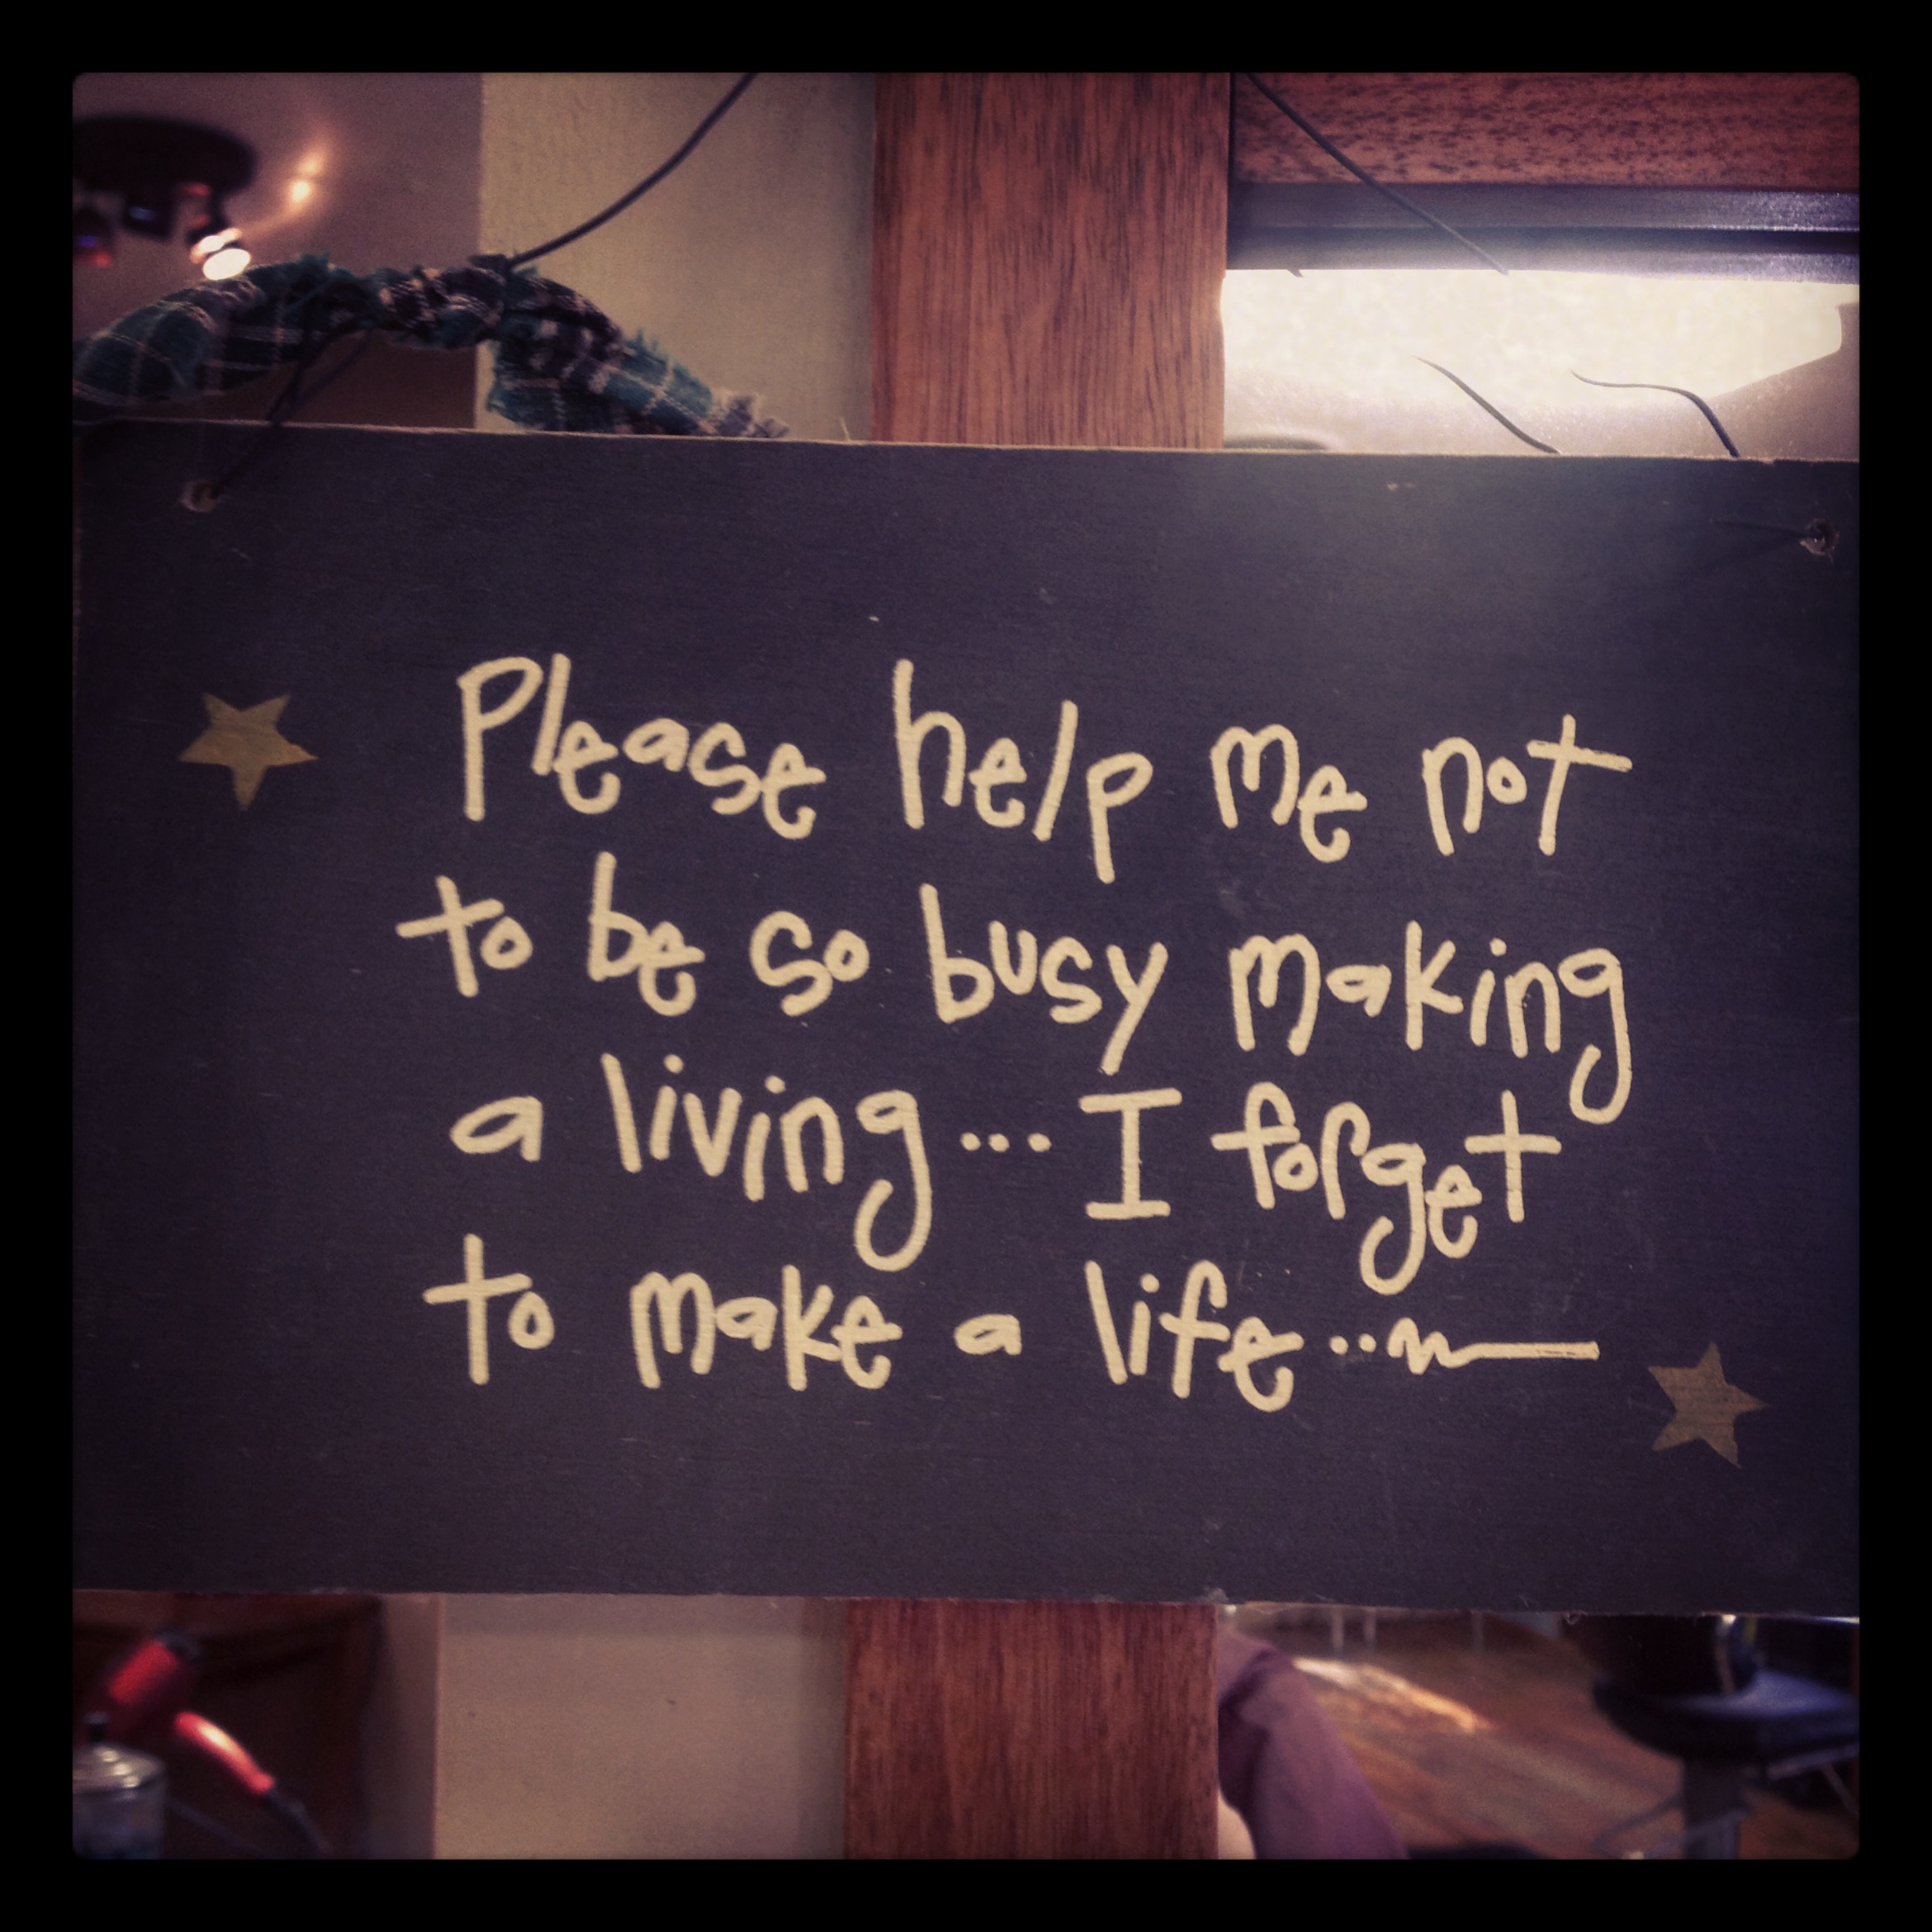 Please help me not
to be so busy making
a living... I forget
to make a life..